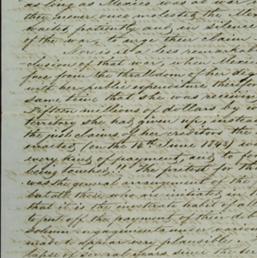 as long as Mexico was at war
they never once molested the Mex
waited patiently and in silence
of the war, to their claim
Nor is it a less remarkable
closing of that war, when Mexico
free from the thraldom of her
with her public expenditure
same time that she was
fifteen millions of dollars by
territory she had given up, instead
the just claims of her creditors the
enacted (on the 14th June 1843)
every kind of payment, and to
being touched. The pretext for th
was the general arrangement of the
but all those who are initiated in
that it is the inveterate habit of
to put off the payment of their deb
solemn engagements under various
made to appear very plausible
lapse of several years since the